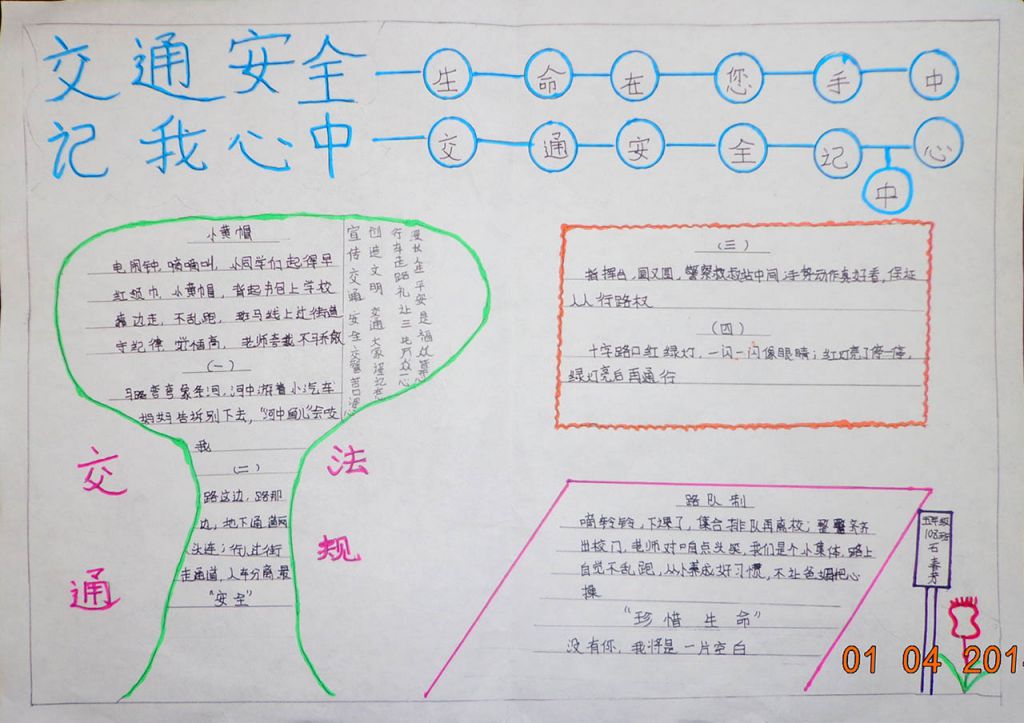 交通安全
记我心中
生命在您手中
交通安全记心中
小黄帽
电闹钟,嘀嘀叫,小同学们起得早
红领巾,小黄帽,背起书包上学校
靠边走,不乱跑,斑马线上过街道
守纪律,觉悟高,老师夸我不骄傲
(一)
马路弯弯象条河,河中游着小汽车
妈妈告诉别下去,“河中鱼儿”会咬
我
(二)
路这边,路那
边,地下通道两
头连;行人过街
走通道,人车分离最
“安全”
宣传交通安全交警苦口婆心
创造文明交通大家谨记
行车走路礼让三
漫长人生平安是福
交通
法规
(三)
指挥台,圆又圆,警察叔叔站中间,手势动作真好看,保证
人人行路权
(四)
十字路口红绿灯,一闪一闪像眼睛;红灯亮了停一停,
绿灯亮后再通行
路队制
嘀铃铃,下课了,集合排队再离校;整整齐齐
出校门,老师对咱点头笑,我们是个小集体,路上
自觉不乱跑,从小养成好习惯,不让爸妈把心
操
“珍惜生命”
没有你,我将是一片空白
五年级
108班
石春芳
01 04 201